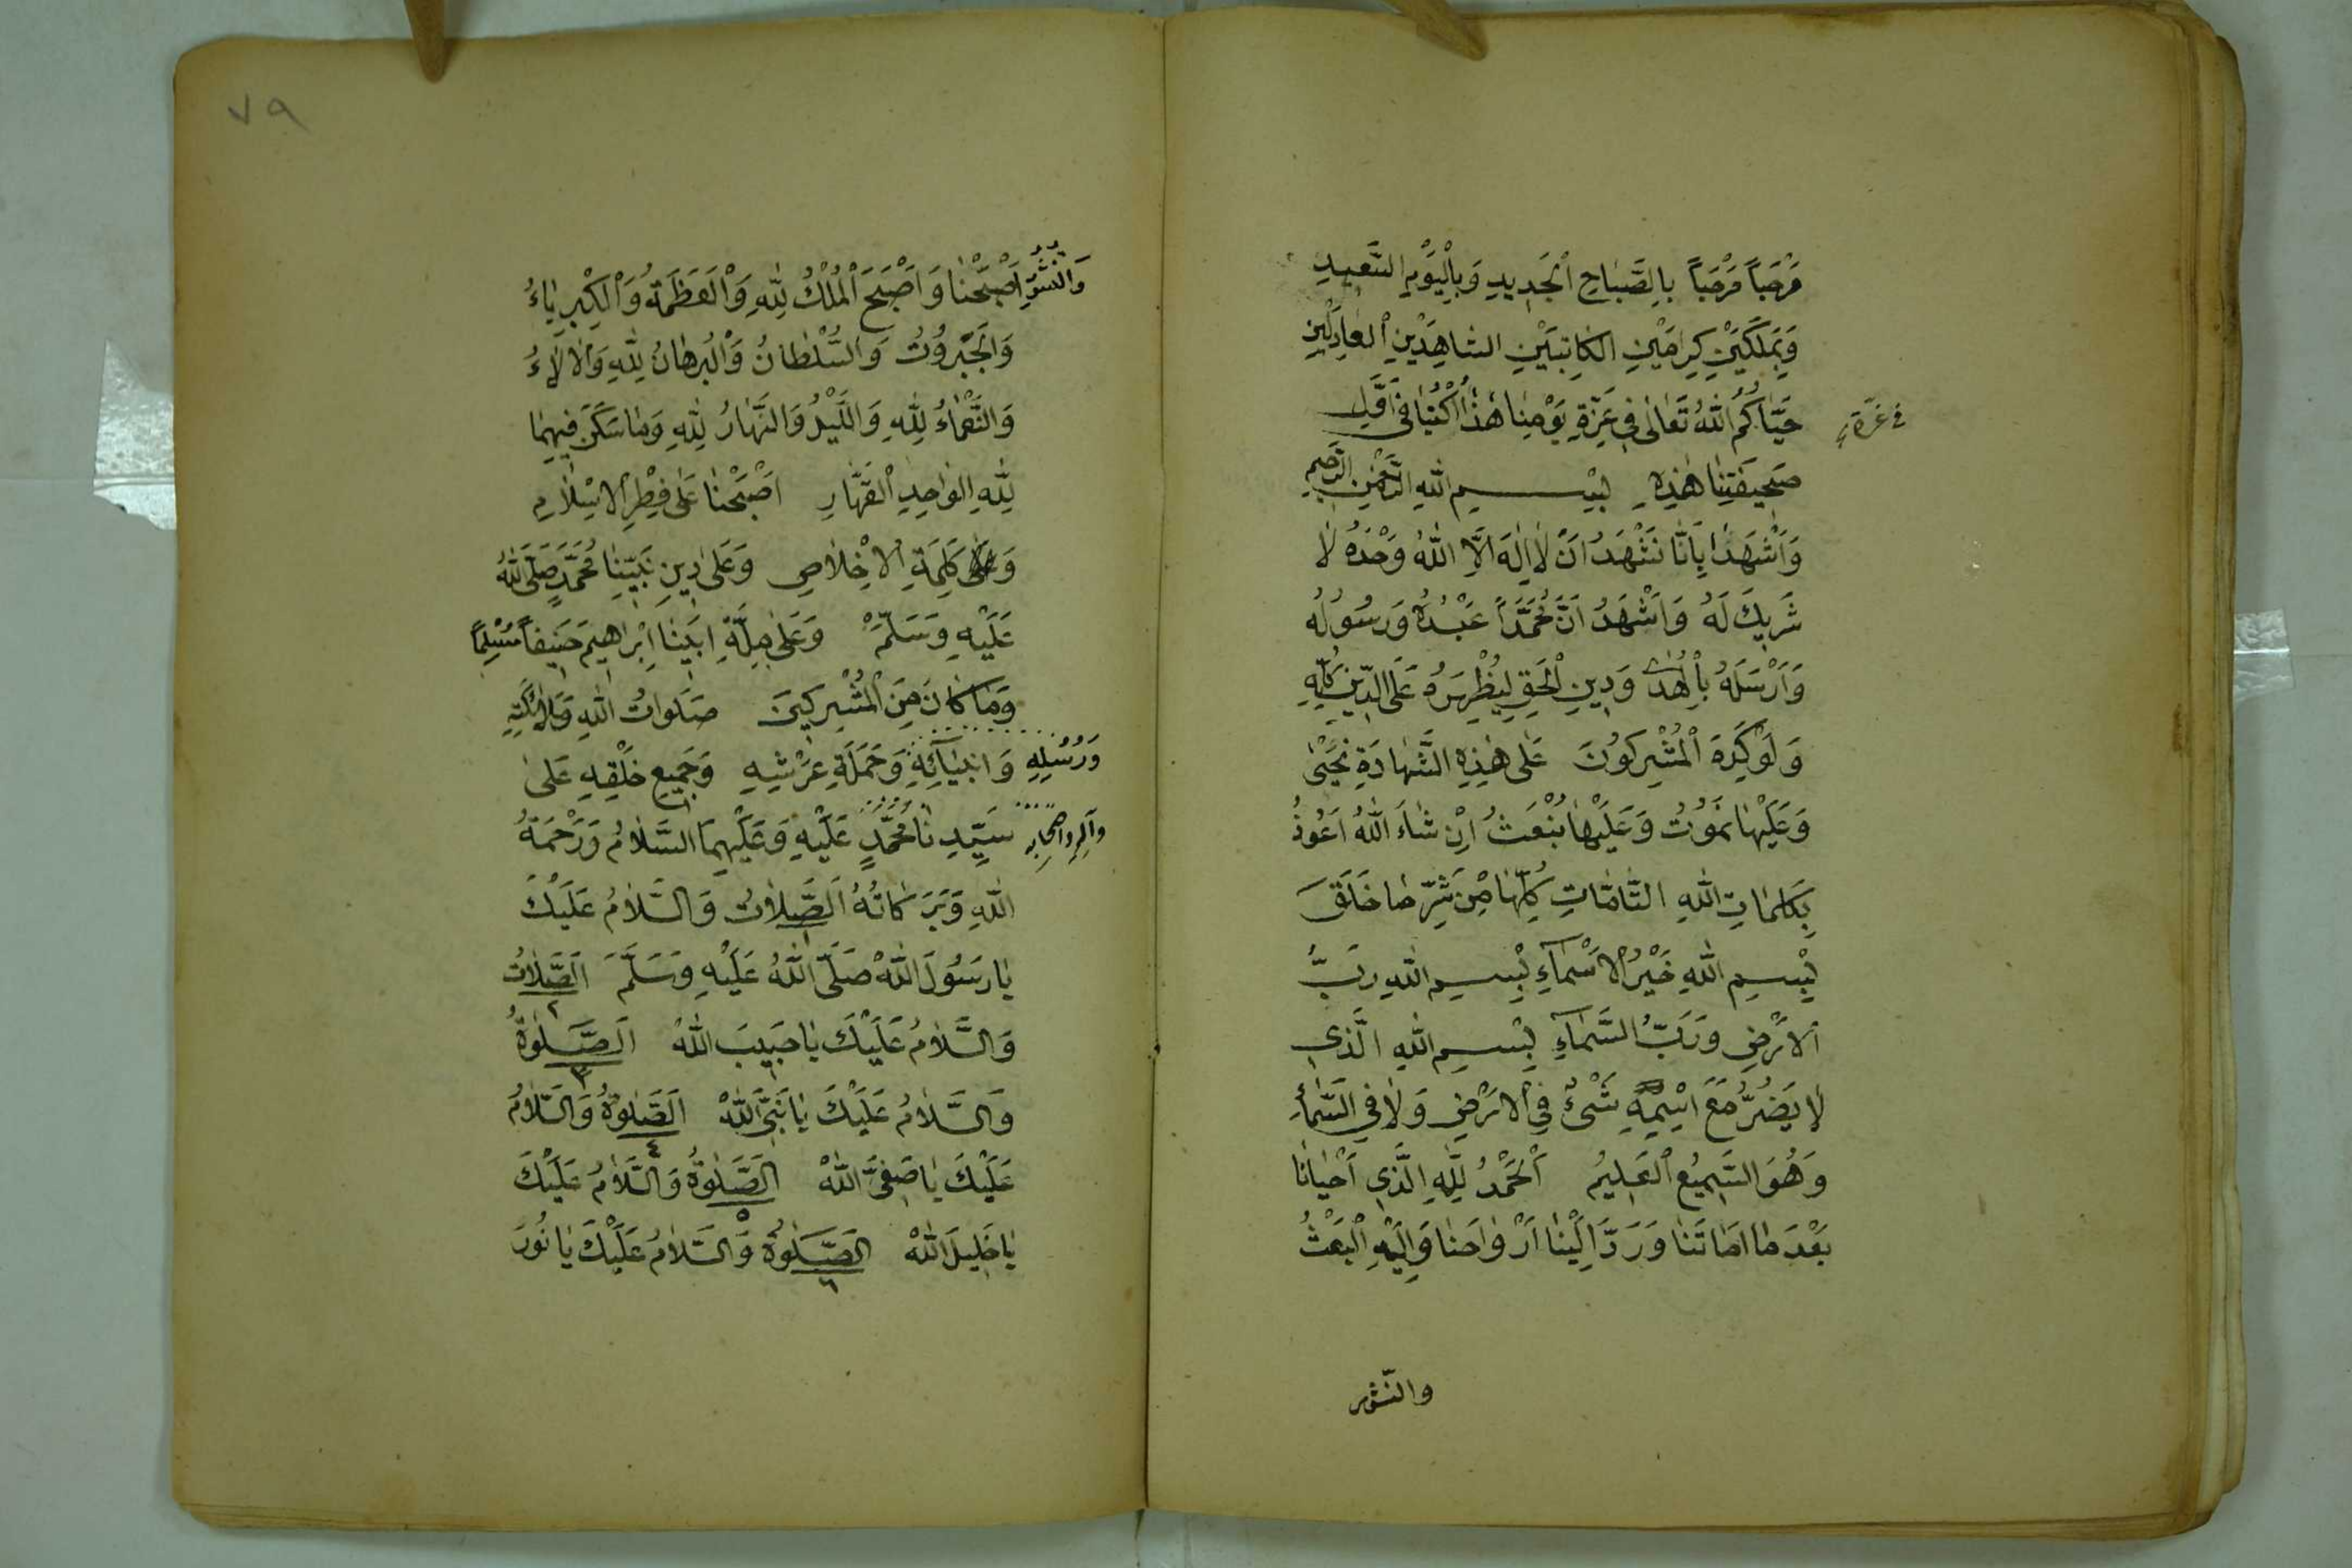 مَرْحَباً مَرْحَباً بِالصَّبَاحِ الْجَدِيدِ وَبِالْيَوْمِ السَّعِيدِ
وَبِمَلَكَيْنِ كِرَامَيْنِ الكَاتِبَيْنِ الشاهِدَيْنِ الْعَادِلَيْنِ
حَيَّاكُمُ اللهُ تَعَالَى فِي غُرَّةِ يَوْمِنَا هَذَا اُكْتُبَا فِي اَوَّلِ
في غرّة
صَحِيفَتِنَا هَذِهِ بِسْمِ اللهِ الرَّحْمنِ الرَّحِيمِ
وَاَشْهَدَا بِاَنَّا نَشْهَدُ اَنْ لَا اِلهَ اِلَّا اللهُ وَحْدَهُ لَا
شَرِيكَ لَهُ وَاَشْهَدُ اَنَّ مُحَمَّداً عَبْدُهُ وَرَسُولُه
وَاَرْسَلَهُ بِالْهُدى وَدِينِ الْحَقِ لِيُظْهِرَهُ عَلَى الدِّينِ كُلِّهِ
وَلَوْ كَرِهَ الْمُشْرِكُونَ عَلى هَذِهِ الشَّهَادَةِ نَحْيَى
وَعَلَيْهَا نَمُوتُ وَعَلَيْهَا نُبْعَثُ اِنْ شَاءَ اللهُ اَعُوذُ
بِكَلِمَاتِ اللهِ التَّامَّاتِ كُلِّهَا مِنْ شَرِّ مَا خَلَقَ
بِسْمِ اللهِ خَيْرُ الْاَسْمَآءِ بِسْمِ اللهِ رَبُّ
الْاَرْضِ وَرَبُّ السَّمَآءِ بِسْمِ اللهِ الَّذِي
لَا يَضُرُّ مَعَ اِسْمِهِ شَىْءٌ فِي الْاَرْضِ وَلَا فِي السَّمَاءِ
وَهُوَ السَّمِيعُ الْعَلِيمُ اَلْحَمْدُ لِلّهِ الَّذِي اَحْيَانَا
بَعْدَ مَا اَمَاتَنَا وَرَدَّ اِلَيْنَا اَرْوَاحَنَا وَاِلَيْهِ الْبَعْثُ
والنّشور
٧٩
وَالنُّشُورُ اَصْبَحْنَا وَاَصْبَحَ الْمُلْكُ لِلّهِ وَالْعَظَمَةُ وَالْكِبْرِيَاءُ
وَالْجَبَرُوتُ وَالسُّلْطَانُ وَالْبُرهَانُ لِلّهِ وَالْآلَاءُ
وَالنَّعْمَاءُ لِلّهِ وَاللَّيْلُ وَالنَّهَارُ لِلّهِ وَمَا سَكَنَ فِيهِمَا
لِلّهِ الْوَاحِدِ الْقَهَّارِ اَصْبَحْنَا عَلى فِطْرِ الْاِسْلَامِ
وَعَلى كَلِمَةِ الْاِخْلَاصِ وَعَلَى دِينِ نَبِيِّنَا مُحَمَّدٍ صَلَّى اللهُ
عَلَيْهِ وَسَلَّمَ وَعَلى مِلَّةِ اَبِينَا اِبْرَاهِيمَ حَنِيفاً مُسْلِماً
وَمَا كَانَ مِنَ الْمُشْرِكِينَ صَلَوَاتُ اللهِ وَمَلَائِكَتِهِ
وَرُسُلِهِ وَاَنْبِيَآئِهِ وَحَمَلَةِ عَرْشِهِ وَجَمِيعِ خَلْقِهِ عَلى
سَيِّدِنَا مُحَمَّدٍ عَلَيْهِ وَعَلَيْهِمَ السَّلَامُ وَرَحْمَةُ
وآله واصحابه
اللهِ وَبَرَكَاتُهُ اَلصَّلَاتُ وَالسَّلَامُ عَلَيْكَ
١
يَا رَسُولَ اللهْ صَلَّى اللهُ عَلَيْهِ وَسَلَّمَ اَلصَّلَاتُ
٢
وَالسَّلَامُ عَلَيْكَ يَا حَبِيبَ اللهْ اَلصَّلوةُ
٣
وَالسَّلَامُ عَلَيْكَ يَا نَبِيَّ اللهْ اَلصَّلوةُ وَالسَّلَامُ
٤
عَلَيْكَ يَا صَفِيَّ اللهْ اَلصَّلوةُ وَالسَّلَامُ عَلَيْكَ
٥
يَا خَلِيلَ اللهْ اَلصَّلوةُ وَالسَّلَامُ عَلَيْكَ يَا نُورَ
٦